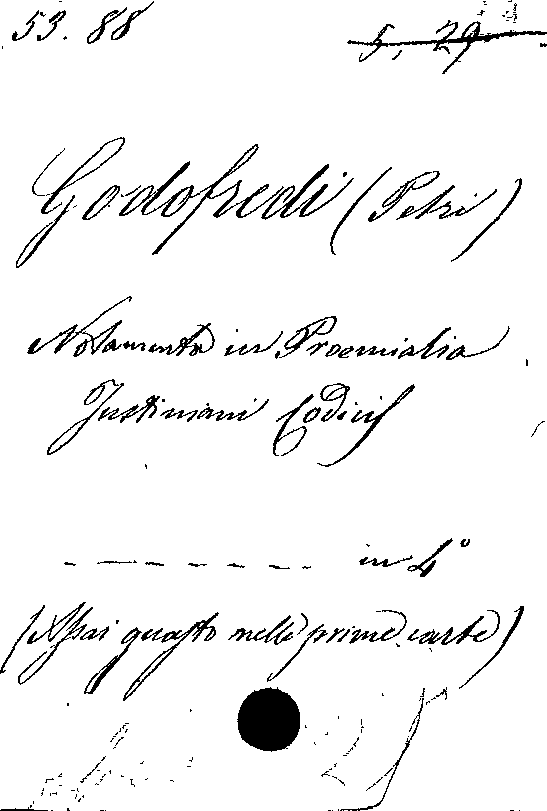 53. 88
5, 29
Godofredi (Petri)
Notamenta in Proemialia
Justiniani Codicis
- - - - - - - - in 4°
(Assai guasto nelle prime carte)